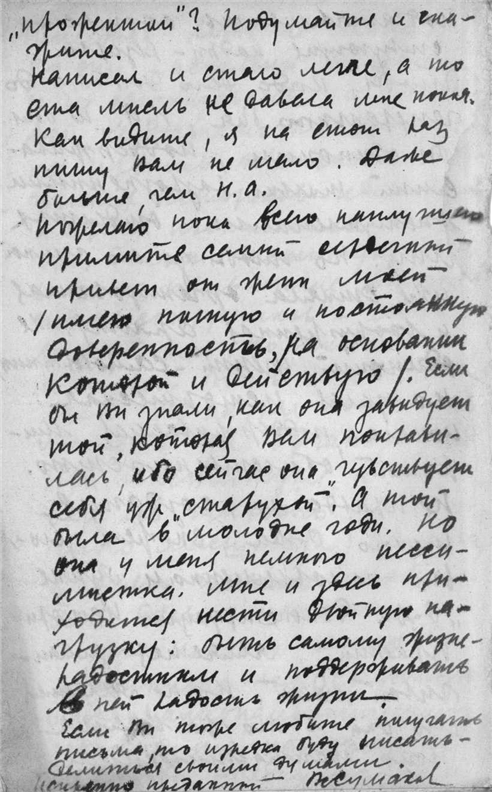 „прожектии"? Подумайте и ска-
жите.
Написал и стало легче, а то
эта мысль не давала мне покоя.
Как видите, я на этот раз
пишу Вам не мало. Даже
больше чем Н.А.
Пожелаю пока всего наилучшего
примите самый сердечный
привет от жены моей
/имею полную и постоянную
доверенность, на основании
которой и действую/. Если
бы Вы знали, как она завидует
той, которая Вам понрави-
лась, ибо сейчас она „чувствует
себя уж „старухой". А той
была в молодые годы. Но
она у меня немного песси-
мистка. Мне и здесь при-
ходится нести двойную на-
грузку: быть самому жизне-
радостным и поддерживать
в ней радость жизни.
Если Вы тоже любите получать
письма, то изредка буду писать-
делиться своими думами.
Искренно преданный